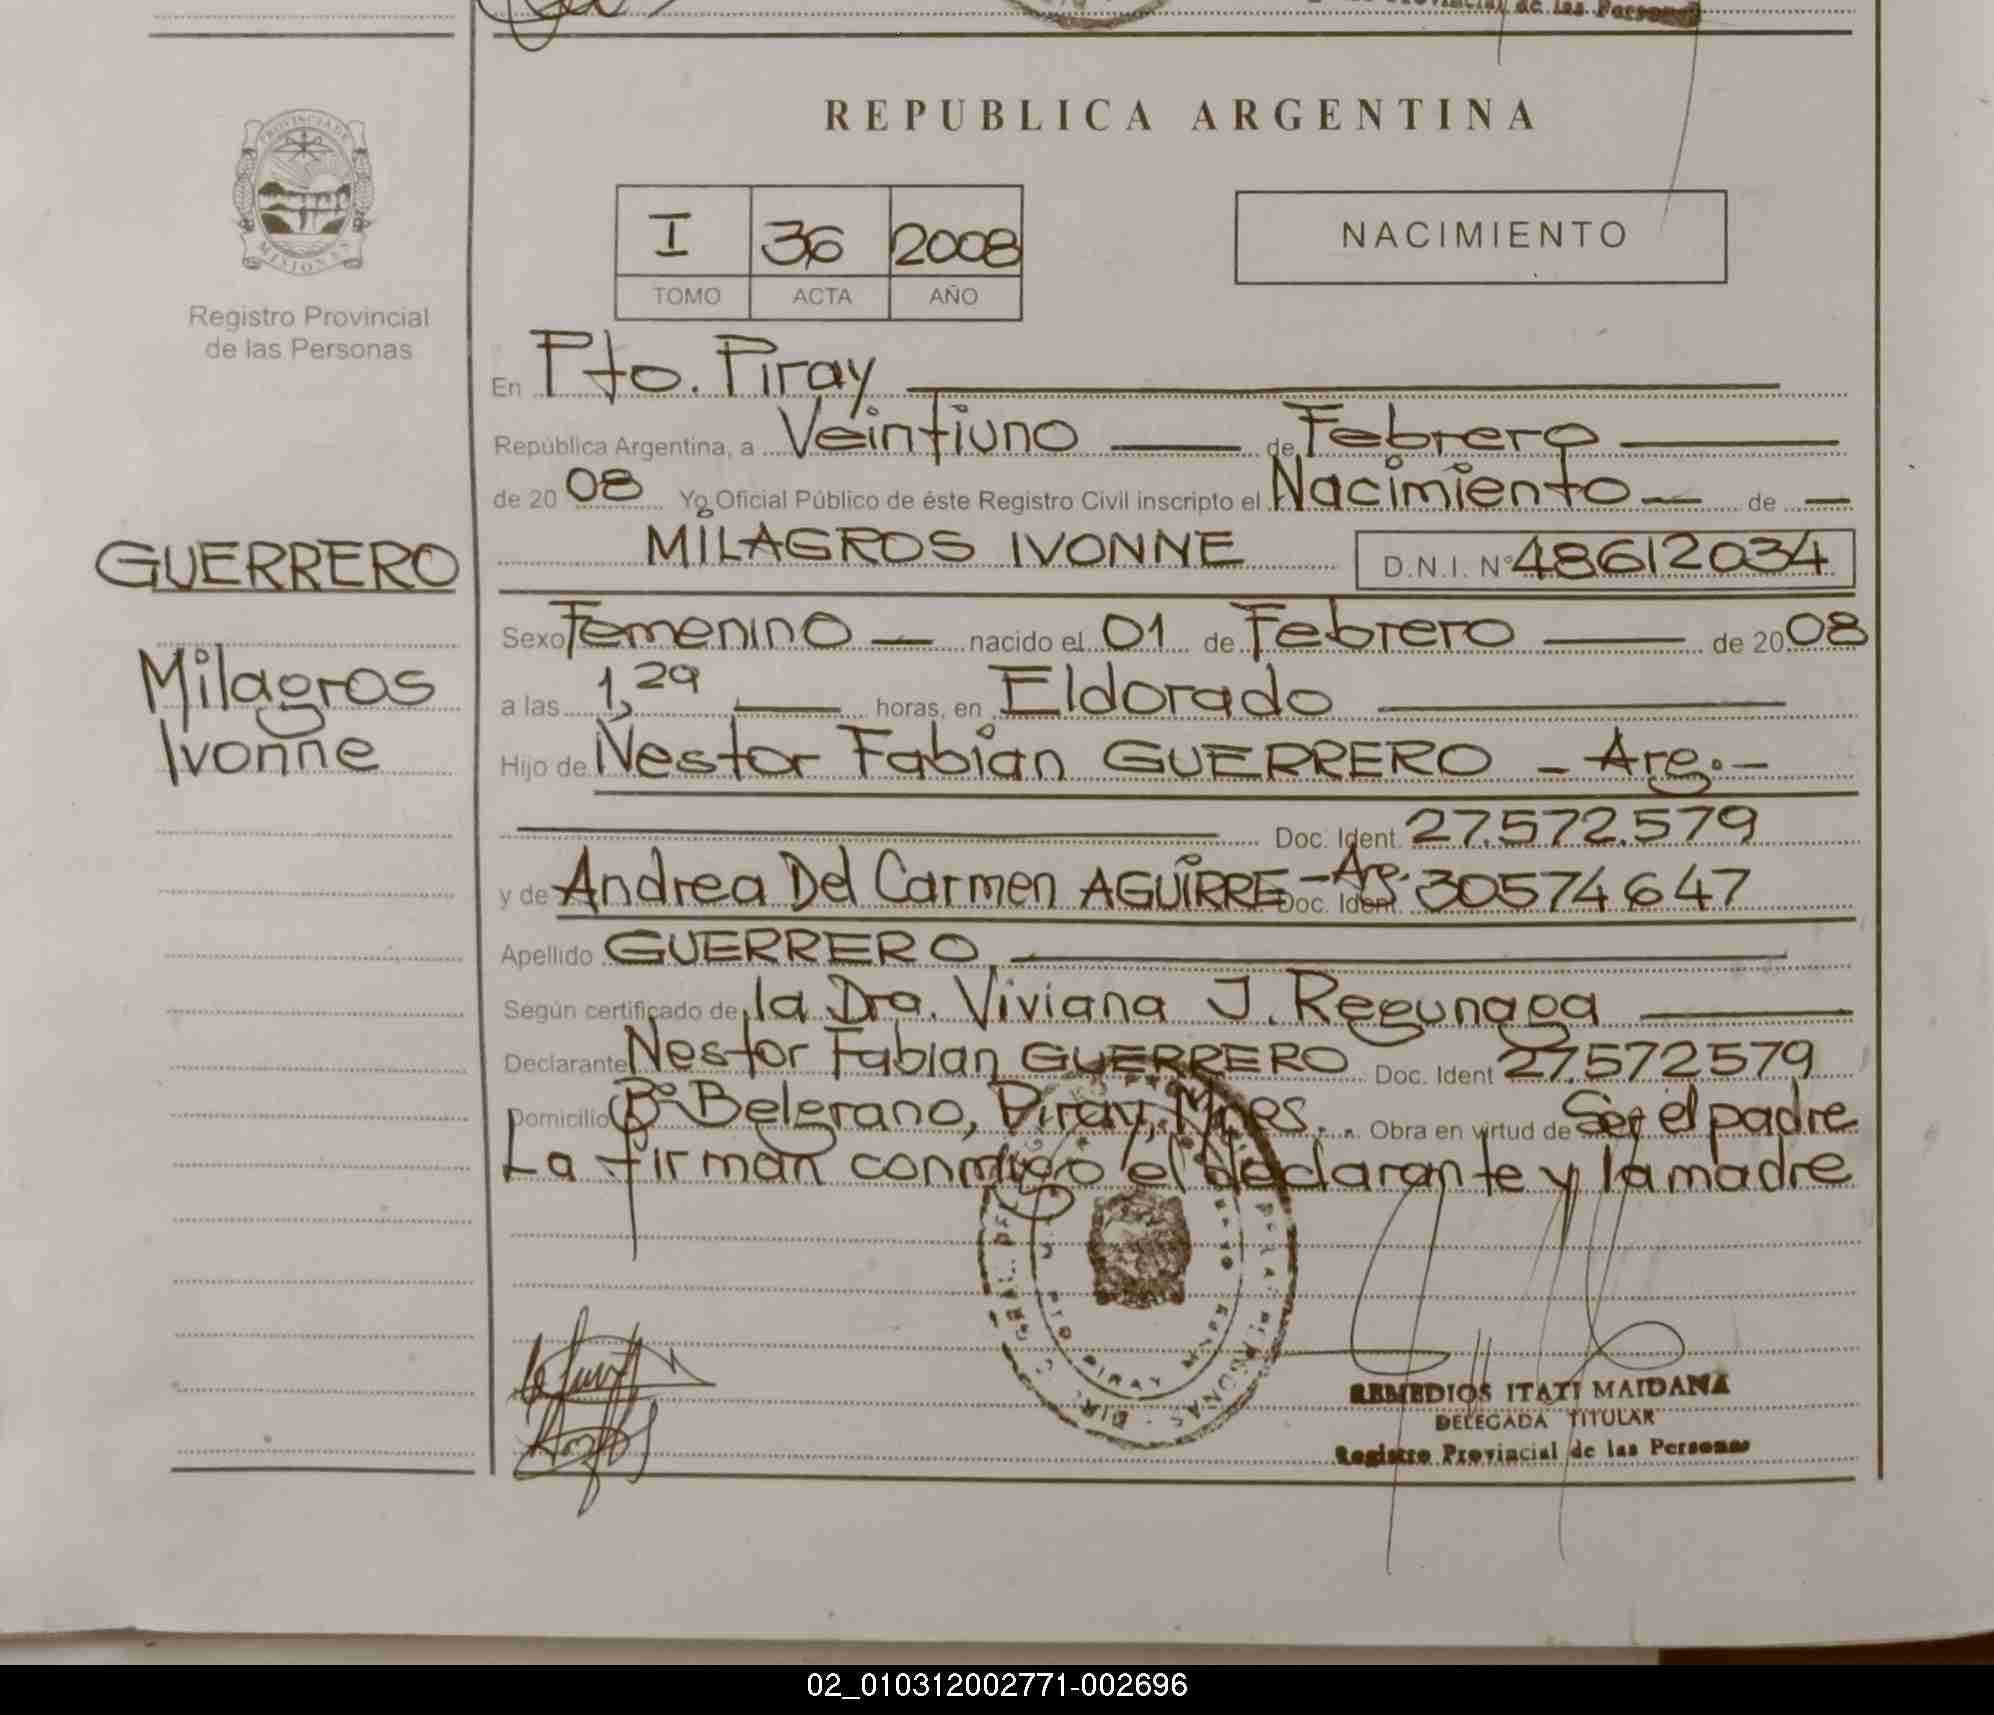 de las Personas
REPUBLICA ARGENTINA
PROVINCIA DE
MISIONES
Registro Provincial
de las Personas
I 36 2008
TOMO ACTA AÑO
NACIMIENTO
En Pto. Piray
República Argentina, a Veintiuno de Febrero
de 20 08 Yo Oficial Público de éste Registro Civil inscripto el Nacimiento de
MILAGROS IVONNE D.N.I. Nº 48612034
GUERRERO
Milagros
Ivonne
Sexo Femenino nacido el 01 de Febrero de 20 08
a las 1,29 horas, en Eldorado
Hijo de Nestor Fabian GUERRERO - Arg. -
Doc. Ident. 27.572.579
y de Andrea Del Carmen AGUIRRE - Arg. Doc. Ident. 30574647
Apellido GUERRERO
Según certificado de la Dra. Viviana J. Regunaga
Declarante Nestor Fabian GUERRERO Doc. Ident 27.572579
Domicilio Bº Belgrano, Piray, Mnes. Obra en virtud de Ser el padre
La firman conmigo el declarante y la madre
PTO PIRAY
REMEDIOS ITATI MAIDANA
DELEGADA TITULAR
Registro Provincial de las Personas
02_010312002771-002696